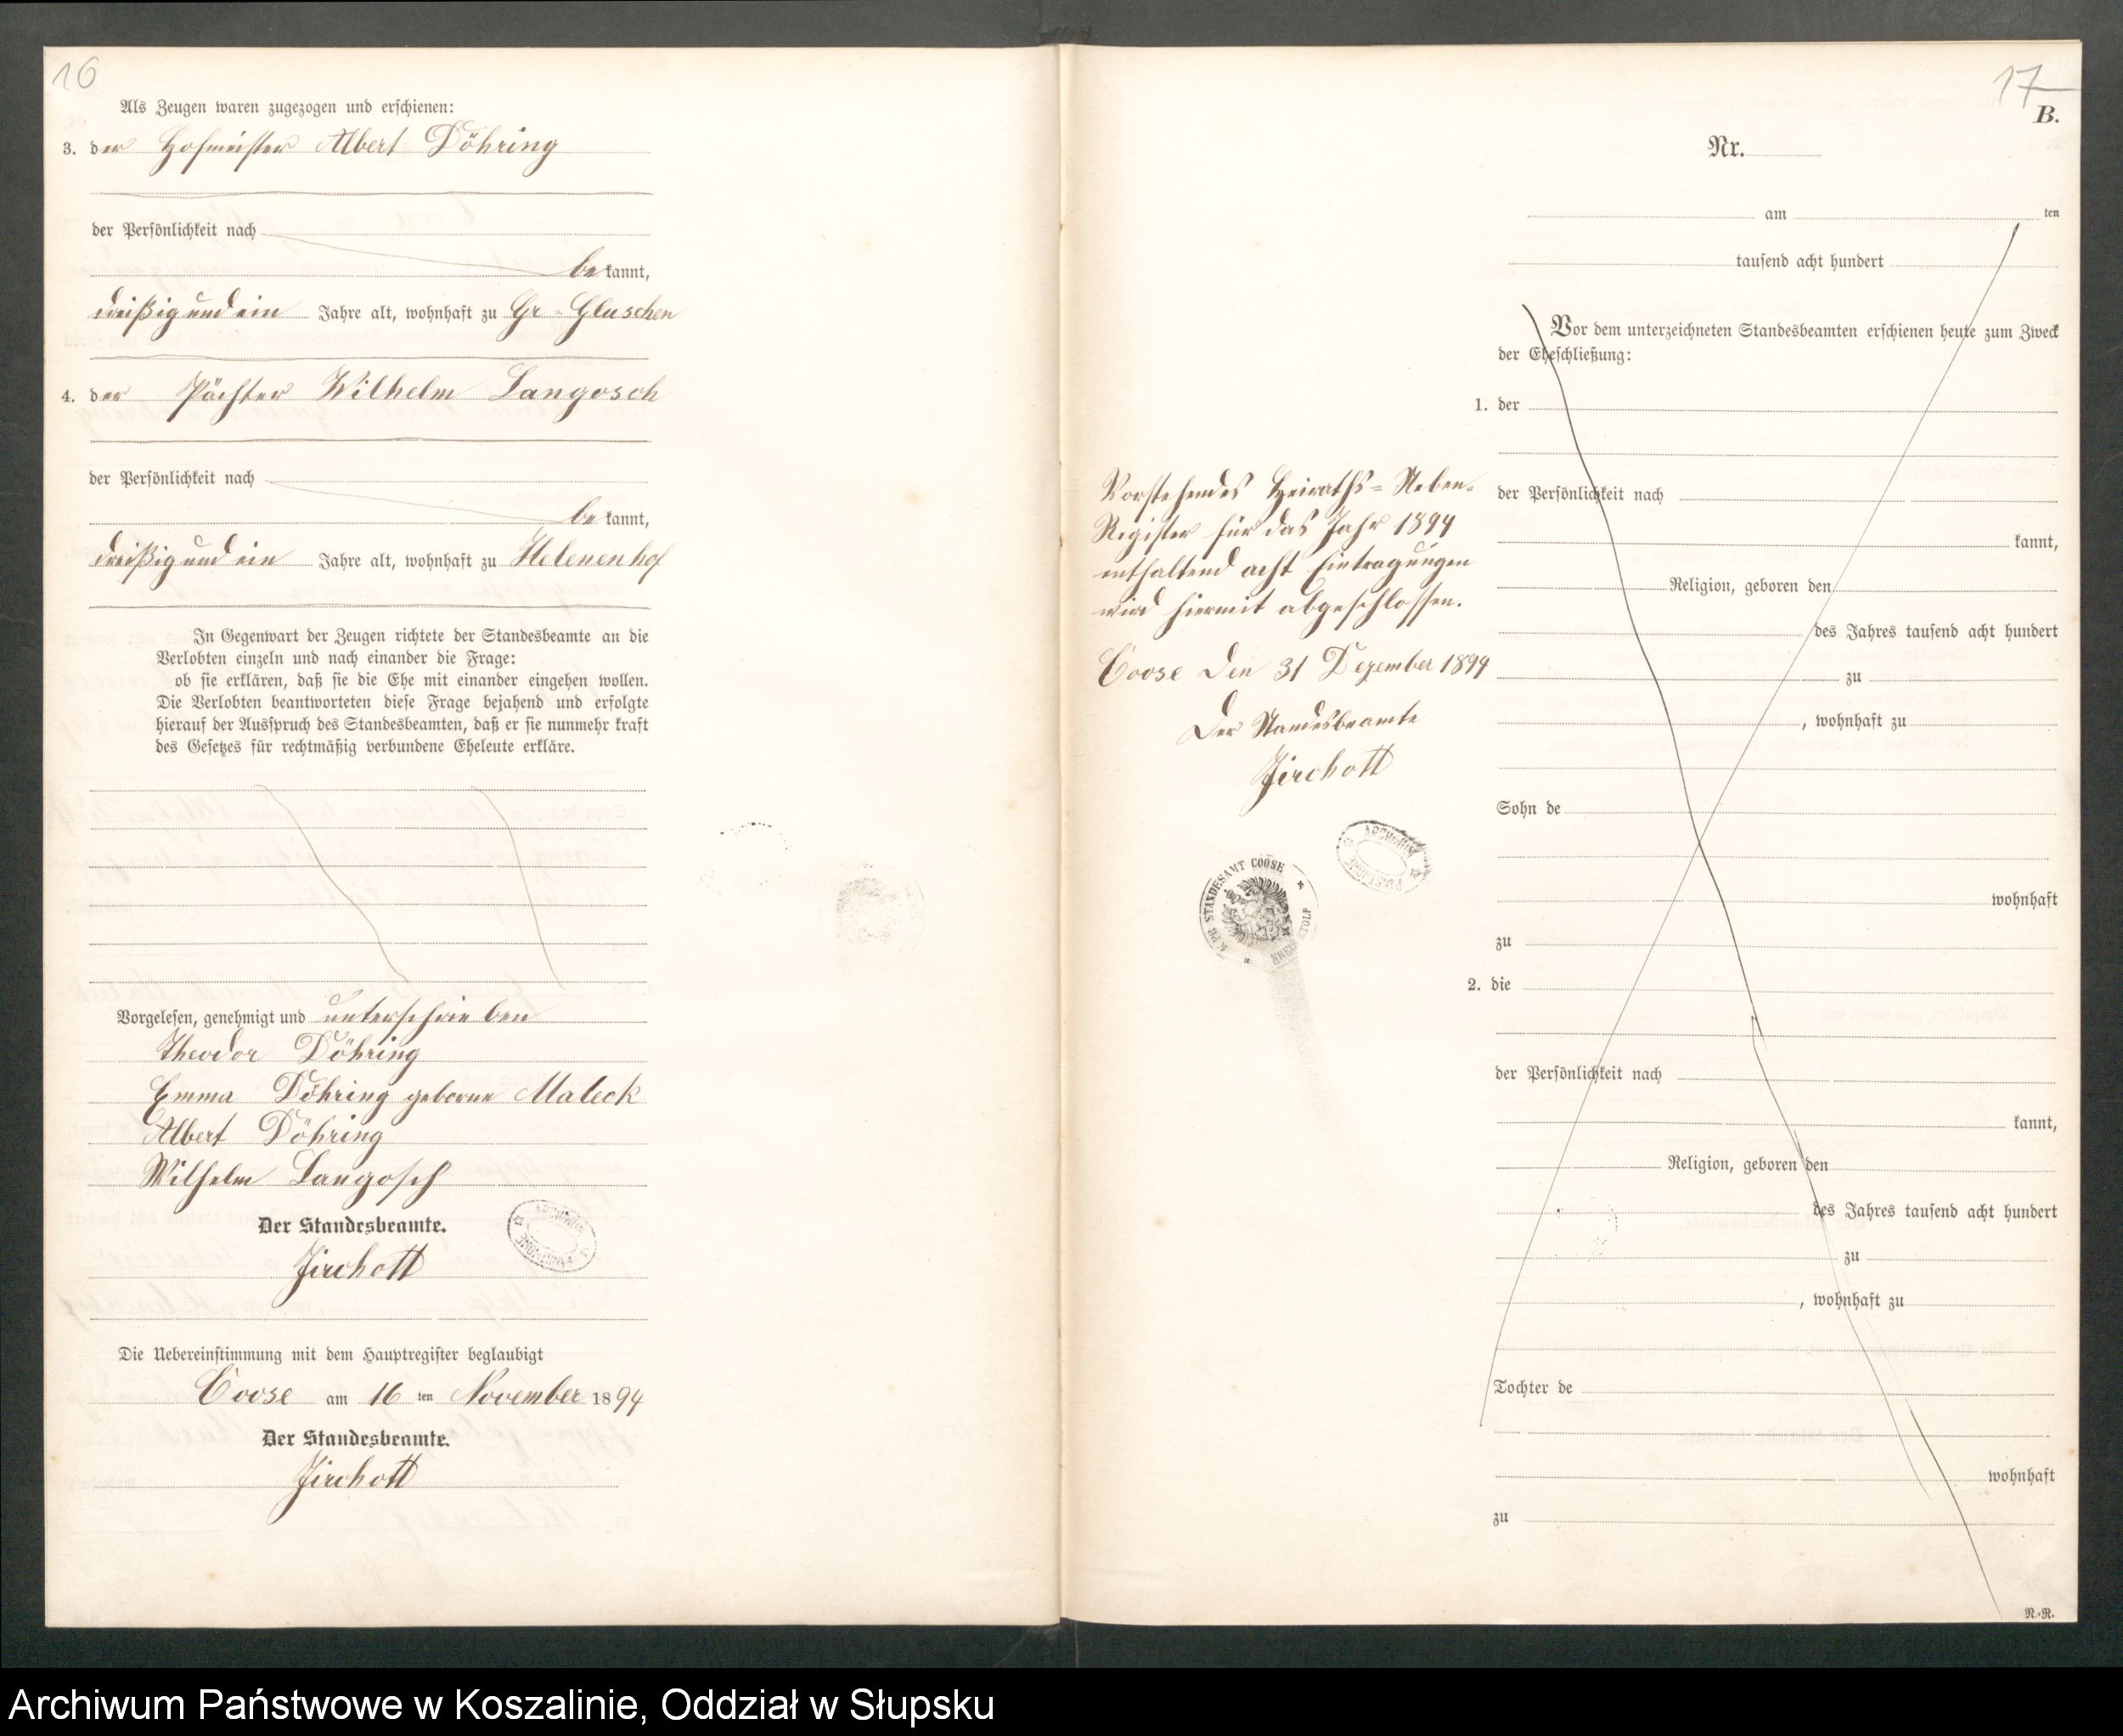 16
Als Zeugen waren zugezogen und erschienen:
3. der Hofmeister Albert Döhring
der Persönlichkeit nach
be kannt,
dreißig und ein Jahre alt, wohnhaft zu Gr. Gluschen
4. der Pächter Wilhelm Langosch
der Persönlichkeit nach
be kannt,
dreißig und ein Jahre alt, wohnhaft zu Helenenhof
In Gegenwart der Zeugen richtete der Standesbeamte an die
Verlobten einzeln und nach einander die Frage:
ob sie erklären, daß sie die Ehe mit einander eingehen wollen.
Die Verlobten beantworteten diese Frage bejahend und erfolgte
hierauf der Ausspruch des Standesbeamten, daß er sie nunmehr kraft
des Gesetzes für rechtmäßig verbundene Eheleute erkläre.
Vorgelesen, genehmigt und unterschrieben
Theodor Döhring
Emma Döhring geborne Maleck
Albert Döhring
Wilhelm Langosch
Der Standesbeamte.
Jirchott
Die Uebereinstimmung mit dem Hauptregister beglaubigt
Coose am 16 ten November 1894
Der Standesbeamte.
Jirchott
17
B.
Nr.
am ten
tausend acht hundert
Vor dem unterzeichneten Standesbeamten erschienen heute zum Zweck
der Eheschließung:
1. der
der Persönlichkeit nach
kannt,
Religion, geboren den
des Jahres tausend acht hundert
zu
, wohnhaft zu
Sohn de
wohnhaft
zu
2. die
der Persönlichkeit nach
kannt,
Religion, geboren den
des Jahres tausend acht hundert
zu
, wohnhaft zu
Tochter de
wohnhaft
zu
N.-R.
Vorstehendes Heiraths-Neben-
Register für das Jahr 1894
enthaltend acht Eintragungen
wird hiermit abgeschlossen.
Coose den 31 Dezember 1894
Der Standesbeamte
Jirchott
K. PR. STANDESAMT COOSE
KREIS STOLP
Archiwum Państwowe w Koszalinie, Oddział w Słupsku